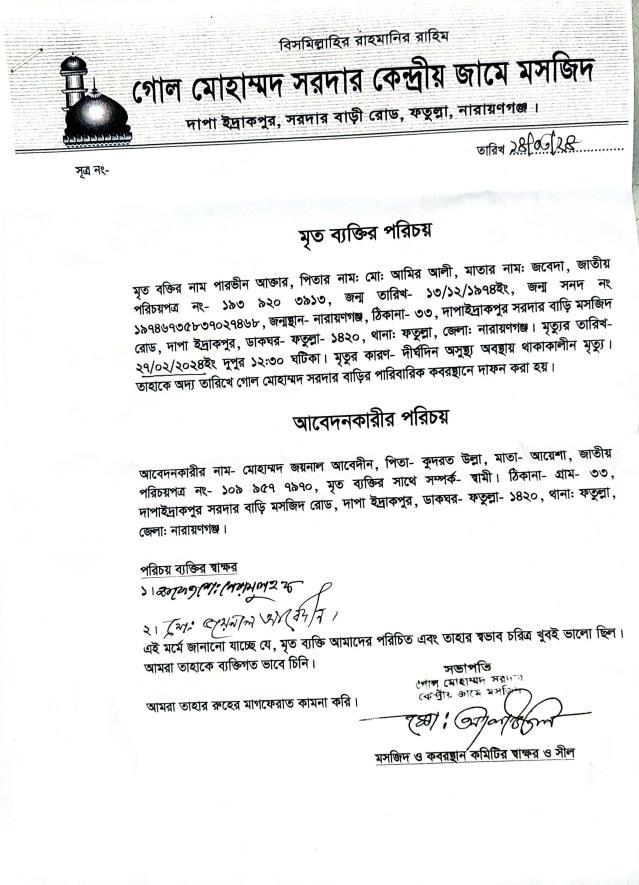 বিসমিল্লাহির রাহমানির রাহিম
গোল মোহাম্মদ সরদার কেন্দ্রীয় জামে মসজিদ
দাপা ইদ্রাকপুর, সরদার বাড়ী রোড, ফতুল্লা, নারায়ণগঞ্জ।
তারিখ
সূত্র নং-
মৃত ব্যক্তির পরিচয়
মৃত বক্তির নাম পারভীন আক্তার, পিতার নাম: মো: আমির আলী, মাতার নাম: জবেদা, জাতীয়
পরিচয়পত্র নং- ১৯৩ ৯২০ ৩৯১৩, জন্ম তারিখ- ১৩/১২/১৯৭৪ইং, জন্ম সনদ নং
১৯৭৪৬৭৩৫৮৩৭০২৭৪৬৮, জন্মস্থান- নারায়ণগঞ্জ, ঠিকানা- ৩৩, দাপাইদ্রাকপুর সরদার বাড়ি মসজিদ
রোড, দাপা ইদ্রাকপুর, ডাকঘর- ফতুল্লা- ১৪২০, থানা: ফতুল্লা, জেলা: নারায়ণগঞ্জ। মৃত্যুর তারিখ-
২৭/০২/২০২৪ইং দুপুর ১২:৩০ ঘটিকা। মৃত্যুর কারণ- দীর্ঘদিন অসুস্থ্য অবস্থায় থাকাকালীন মৃত্যু।
তাহাকে অদ্য তারিখে গোল মোহাম্মদ সরদার বাড়ির পারিবারিক কবরস্থানে দাফন করা হয়।
আবেদনকারীর পরিচয়
আবেদনকারীর নাম- মোহাম্মদ জয়নাল আবেদীন, পিতা- কুদরত উল্লা, মাতা- আয়েশা, জাতীয়
পরিচয়পত্র নং- ১০৯ ৯৫৭ ৭৯৭০, মৃত ব্যক্তির সাথে সম্পর্ক- স্বামী। ঠিকানা- গ্রাম- ৩৩,
দাপাইদ্রাকপুর সরদার বাড়ি মসজিদ রোড, দাপা ইদ্রাকপুর, ডাকঘর- ফতুল্লা- ১৪২০, থানা: ফতুল্লা,
জেলা: নারায়ণগঞ্জ।
পরিচয় ব্যক্তির স্বাক্ষর
১।
২। মো: জয়নাল আবেদীন।
এই মর্মে জানানো যাচ্ছে যে, মৃত ব্যক্তি আমাদের পরিচিত এবং তাহার স্বভাব চরিত্র খুবই ভালো ছিল।
আমরা তাহাকে ব্যক্তিগত ভাবে চিনি।
সভাপতি
গোল মোহাম্মদ সরদার
কেন্দ্রীয় জামে মসজিদ
আমরা তাহার রুহের মাগফেরাত কামনা করি।
মসজিদ ও কবরস্থান কমিটির স্বাক্ষর ও সীল